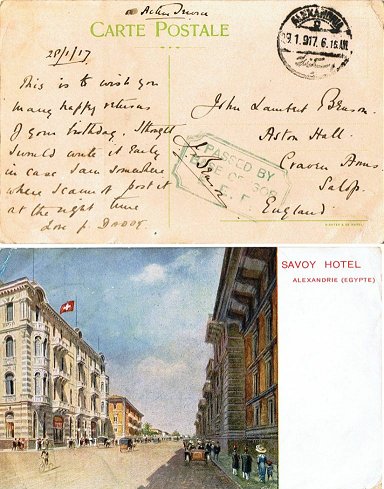 On Active Service
CARTE POSTALE
28/1/17
This is to wish you
many happy returns
of your birthday. I thought
I would write it Early
in case I am somewhere
where I cannot post it
at the right time
Love f. DADDY
ALEXANDRIA
29.1.917. 6.15.AM
John Lambert Benson.
Aston Hall.
Craven Arms.
Salop.
England.
PASSED BY
BASE CENSOR
E. F.
SAVOY HOTEL
ALEXANDRIE (EGYPTE)